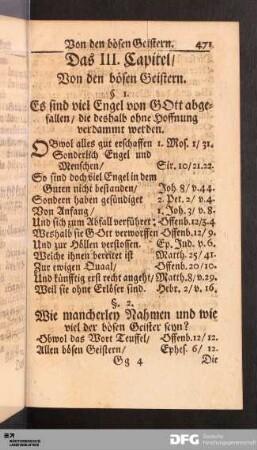 Von den bösen Geistern. 471
Das III. Capitel/
Von den bösen Geistern.
§ 1.
Es sind viel Engel von GOtt abge-
fallen / die deshalb ohne Hoffnung
verdammt werden.
OBwol alles gut erschaffen 1. Mos. 1/31.
Sonderlich Engel und
Menschen/ Sir. 10/21.22.
So sind doch viel Engel in dem
Guten nicht bestanden/ Joh 8/ v.44.
Sondern haben gesündiget 2. Pet. 2/ v.4.
Von Anfang/ 1. Joh. 3/ v.8.
Und sich zum Abfall verführet: Offenb.12/3.4
Weshalb sie GOtt verworffen Offenb.12/9.
Und zur Höllen verstossen. Ep. Jud. v.6.
Welche ihnen bereitet ist Matth. 25/41.
Zur ewigen Quaal/ Offenb.20/10.
Und künfftig erst recht angeht/ Matth.8/v.29.
Weil sie ohne Erlöser sind. Hebr. 2/ v. 16.
§. 2.
Wie mancherley Nahmen und wie
viel der bösen Geister seyn?
Obwol das Wort Teuffel/ Offenb.12/12.
Allen bösen Geistern/ Ephes. 6/ 12.
Gg 4 Die
DFG Deutsche
Forschungsgemeinschaft